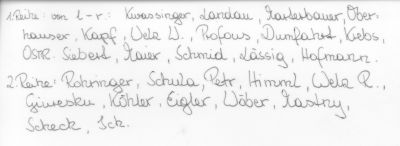 1. Reihe: von l-r.: Kwassinger, Landau, Haderbauer, Ober-
hauser, Kapf, Welz W., Profous, Dumfahrt, Krebs,
OSTR. Siebert, Maier, Schmid, Lässig, Hofmann.
2. Reihe: Rohringer, Schula, Petr, Himml, Welz R.,
Giuresku, Köhler, Eigler, Wöber, Hastry,
Scheck, Ick.